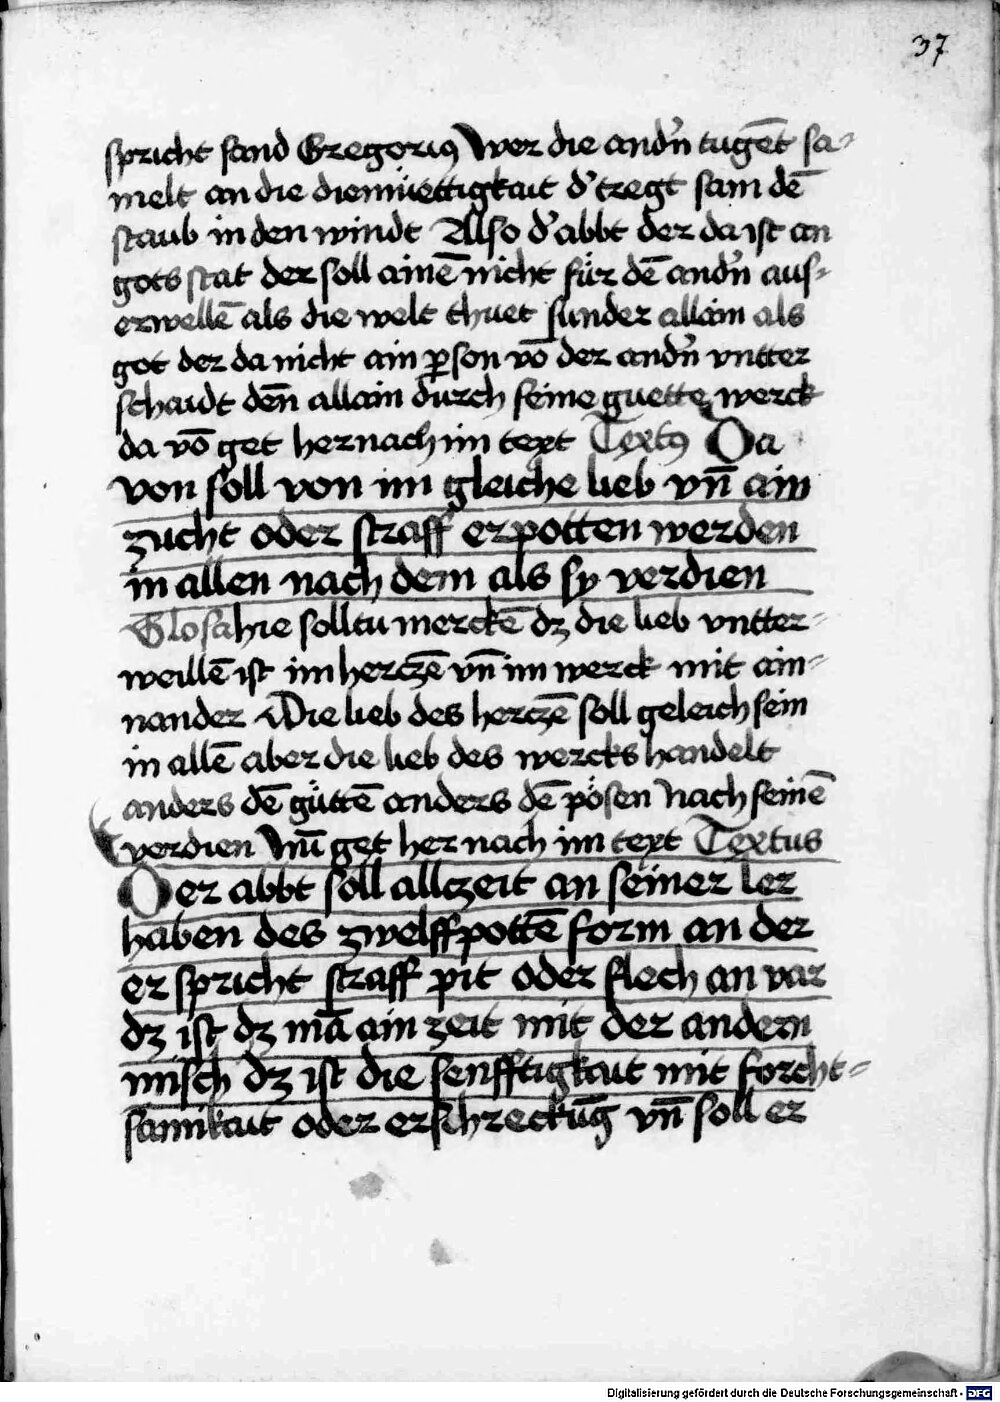 37
spricht sand Gregorius Wer die and'n tugēt sa-
melt an die diemüettigkait d' tregt sam dē
staub in den windt Also d' abbt der da ist an
gots stat der soll ainē nicht für dē and'n aus-
erwellē als die welt thuet sunder allain als
got der da nicht ain ꝑson vō der and'n vntter
schaidt deñ allain durch seine guette werck
da vō get hernach im text Textus Da
von soll von im gleiche lieb vñ ain
zucht oder straff erpotten werden
in allen nach dem als sy verdien
Glosa hie solltu merckē dz die lieb vntter-
weillē ist im herczē vñ im werck mit ain-
nander Die lieb des herczē soll geleich sein
in allē aber die lieb des wercks handelt
anders dē güttē anders dē pösen Nach seinē
verdien Nū get her nach im text Textus
Der abbt soll allczeit an seiner ler
haben des zwelffpottē form an der
er spricht straff pit oder flech an var
dz ist dz mā ain zeit mit der andern
misch dz ist die senfftigkait mit forcht-
samikait oder erschreckūg vñ soll er
Digitalisierung gefördert durch die Deutsche Forschungsgemeinschaft - DFG